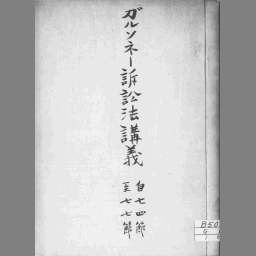 ガルソネー訴訟法講義
自七四節
至七七節
B50